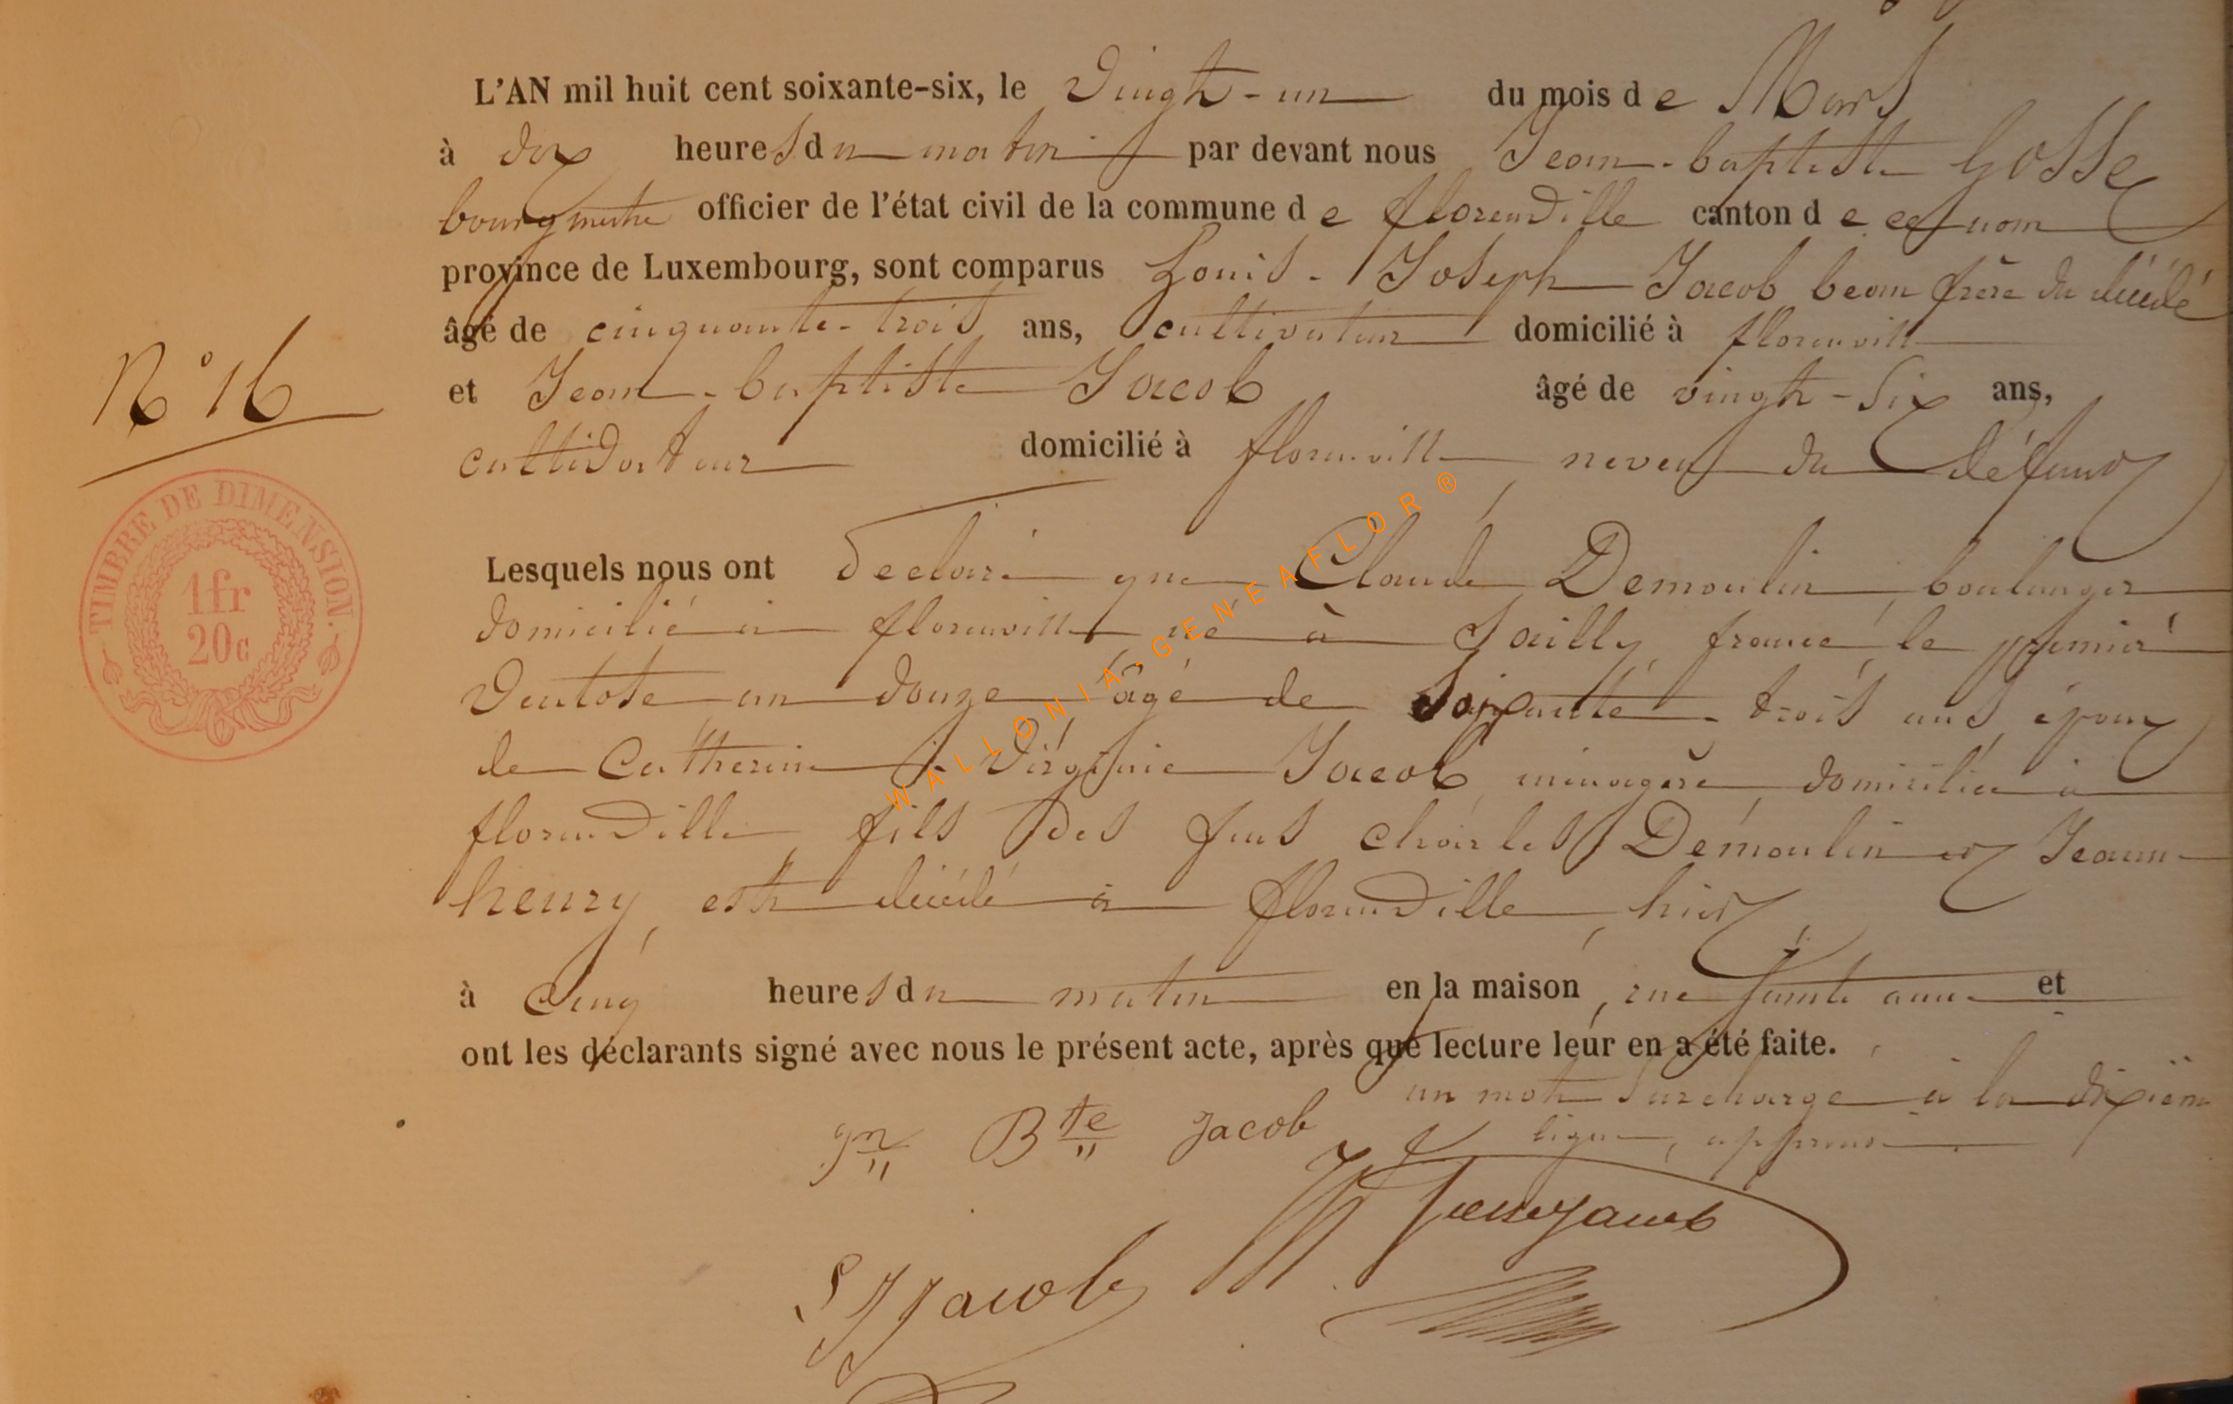 L'AN mil huit cent soixante-six, le vingt-un du mois de Mars
à dix heures du matin par devant nous Jean-baptiste Gosse
bourgmestre officier de l'état civil de la commune de florenville canton de ce nom
province de Luxembourg, sont comparus Louis-Joseph Jacob beau frère du décédé
âgé de cinquante-trois ans, cultivateur domicilié à florenville
et Jean-baptiste Jacob âgé de vingt-six ans,
N° 16
cultivateur domicilié à florenville, neveu du défunt
TIMBRE DE DIMENSION.
1fr
20c
Lesquels nous ont déclaré que Claude Demoulin, boulanger
domicilié à florenville, né à Sailly, france, le premier
ventose an douze, âgé de soixante-trois ans, époux
de Catherine-Virginie Jacob, ménagère, domiciliée à
florenville, fils des feus charles Demoulin et Jeanne
henry, est décédé à florenville, hier,
à cinq heures du matin en la maison, rue Sainte anne et
ont les déclarants signé avec nous le présent acte, après que lecture leur en a été faite.
un mot surchargé à la dixième
ligne, approuvé.
Jn Bte Jacob
L J Jacob
WALLONIA-GENEAFLOR®